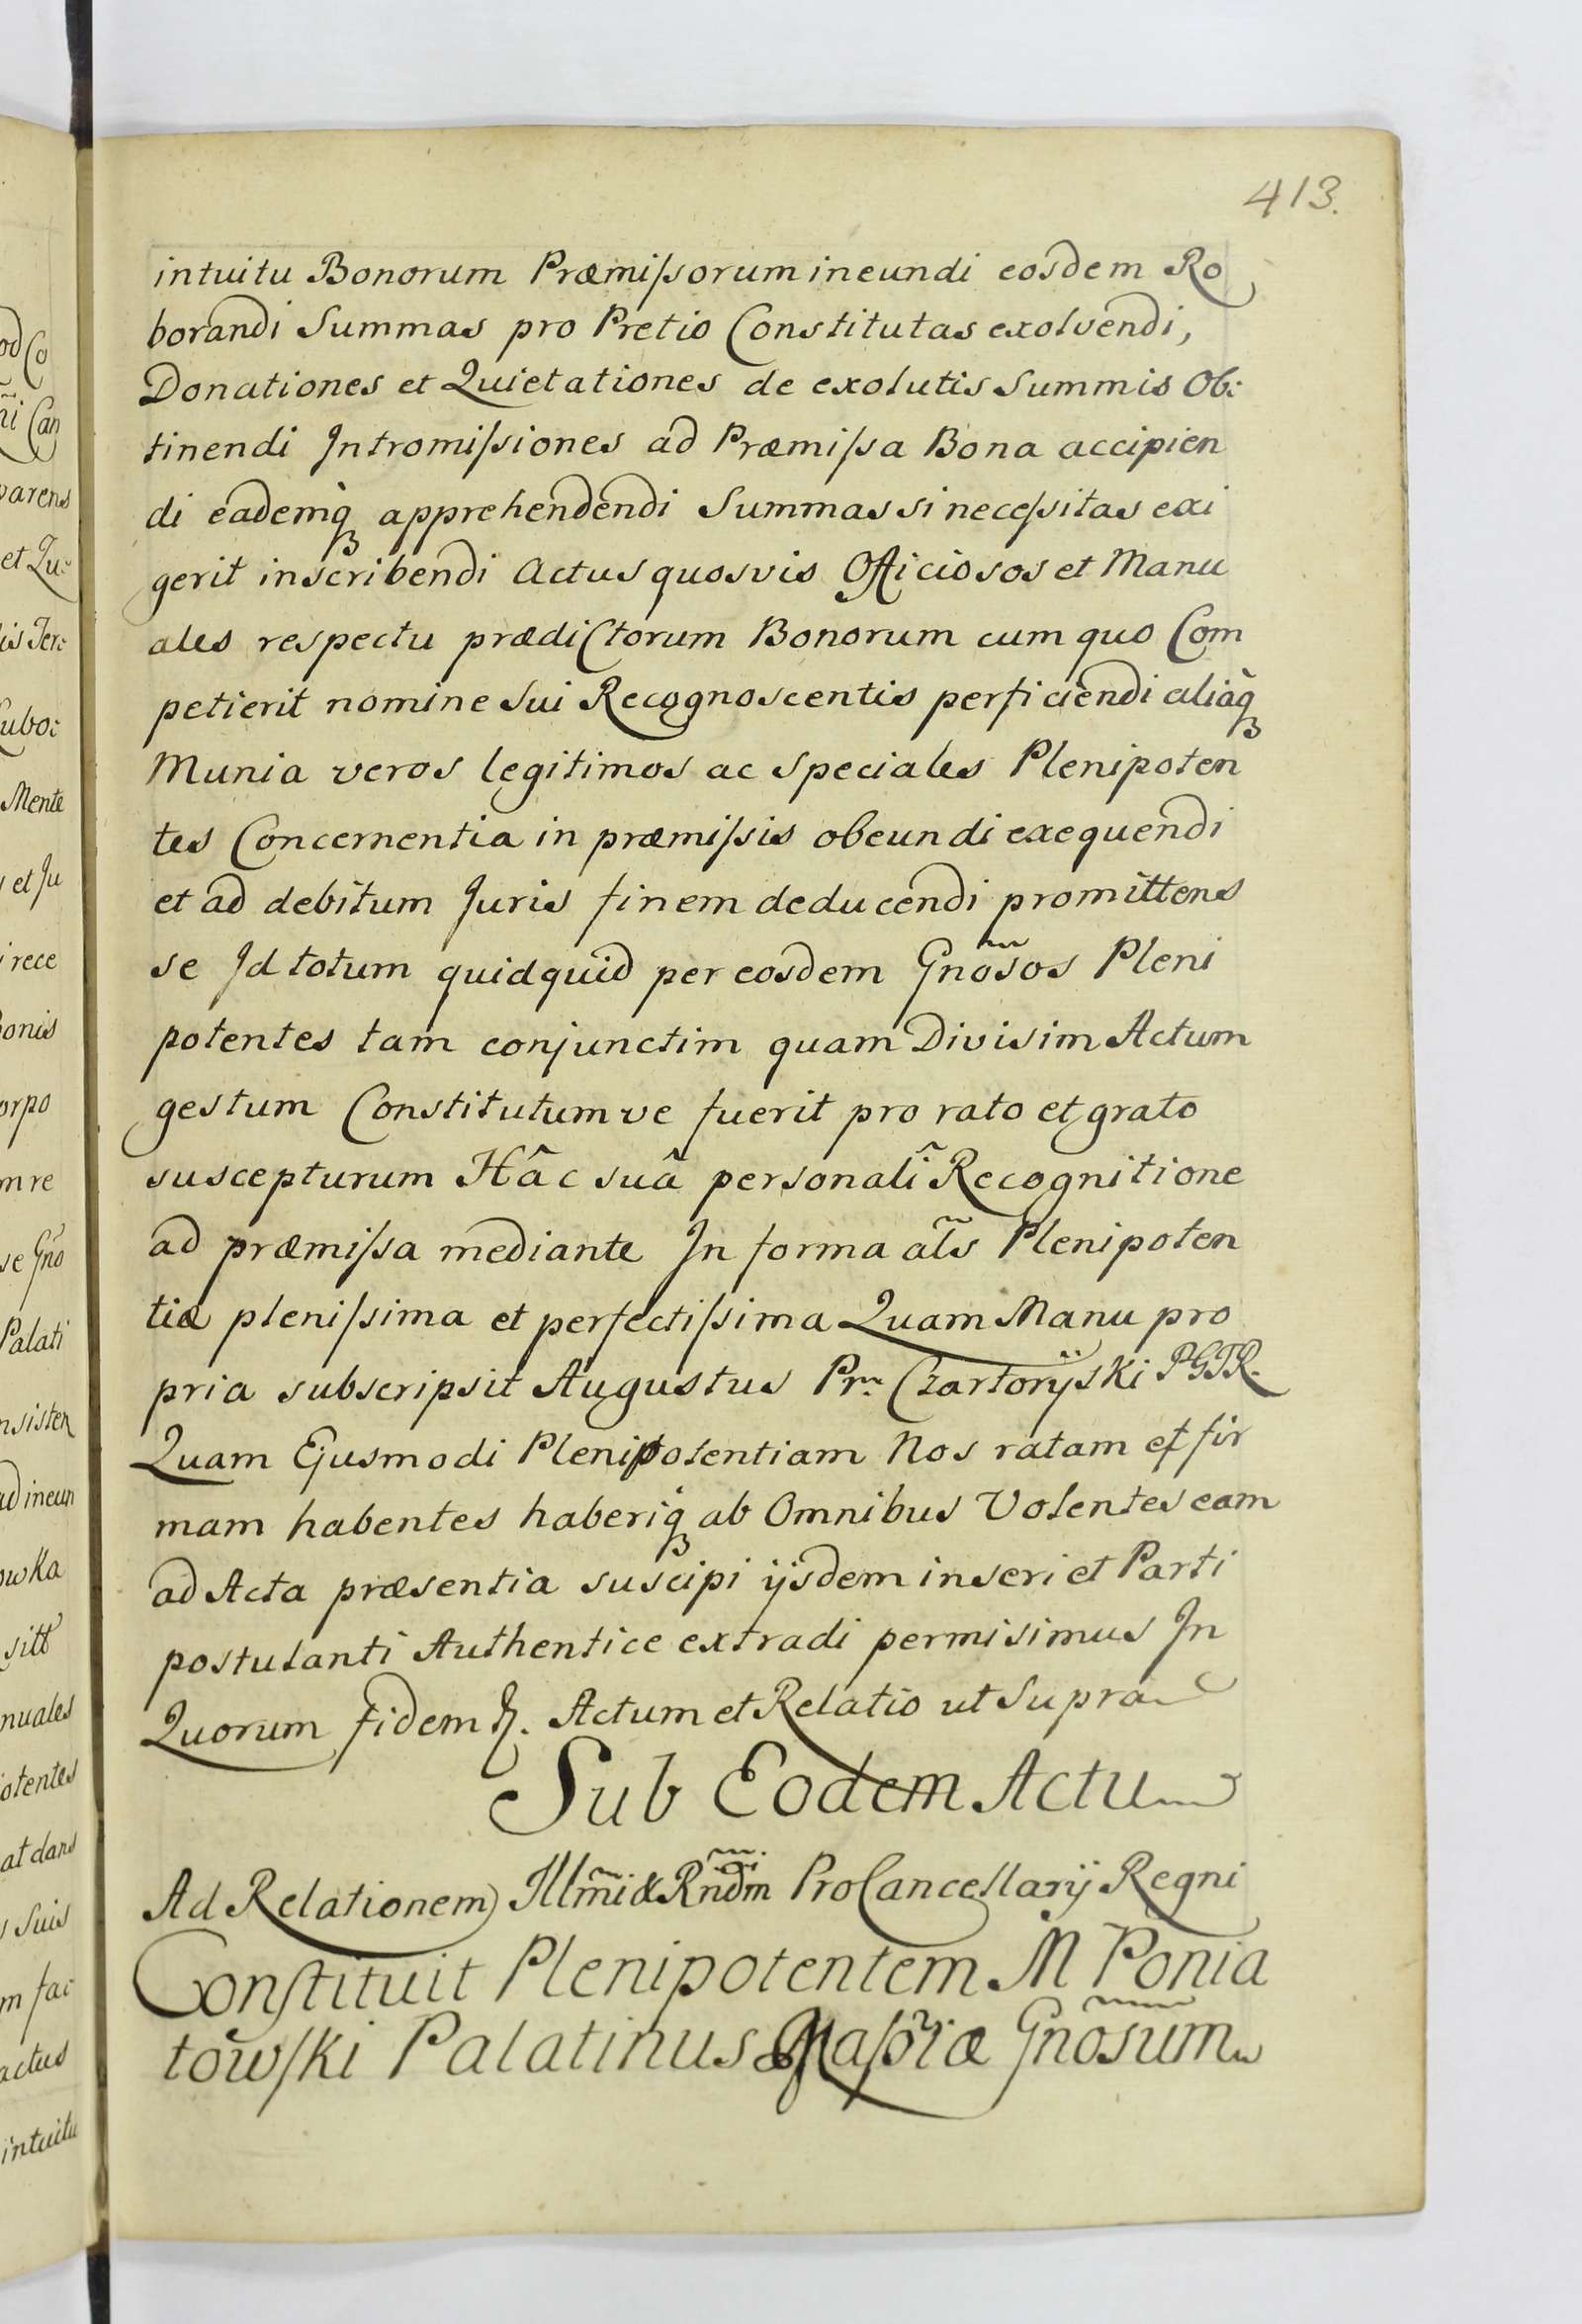 413.
intuitu Bonorum Præmissorum ineundi eosdem Ro
borandi Summas pro Pretio Constitutas exolvendi,
Donationes et Quietationes de exolutis Summis Ob:
tinendi Intromissiones ad Præmissa Bona accipien
di eademq̀ apprehendendi Summas si necessitas exi
gerit inscribendi Actus quosvis Officiosos et Manu
ales respectu prædictorum Bonorum cum quo Com
petierit nomine Sui Recognoscentis perficiendi aliaq̀
Munia veros legitimos ac Speciales Plenipoten
tes Concernentia in præmissis obeundi exequendi
et ad debitum Juris finem deducendi promittens
se Id totum quidquid per eosdem Gnõsos Pleni
potentes tam conjunctim quam Divisim Actum
gestum Constitutumve fuerit pro rato et grato
suscepturum Hâc suâ personali Recognitione
ad præmissa mediante In forma al̃s Plenipoten
tiæ plenissima et perfectissima Quam Manu pro
pria subscripsit Augustus Prn Czartorÿski PGTR.
Quam Ejusmodi Plenipotentiam Nos ratam et fir
mam habentes haberiq̀ ab Omnibus Volentes eam
ad Acta præsentia suscipi ijsdem inseri et Parti
postulanti Authentice extradi permisimus In
Quorum fidem &. Actum et Relatio ut Supra
Sub Eodem Actu
Ad Relationem Illm̃i & Rnd̃m ProCancellarij Regni
Constituit Plenipotentem M Ponia
towski Palatinus Masõiæ Gnõsum
od Co
ñi Can
parens
et Qu:
lis Ter:
Lubo:
Mente
et Ju
rece
Bonis
orpo
m re
se Gno
Palati
nsisten
ad ineun
owka
sitt
nuales
otentes
at dans
s suis
m fac
actus
intuitu